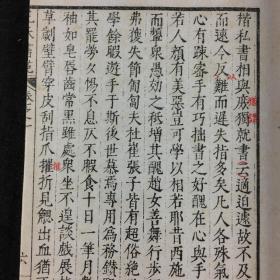 楷私書相與庶獨就書云適迫遽故不及
而速今反難而遲失指多矣凡人各殊氣
心有疎密手有巧拙書之好醜在心與手
若人顔有美惡豈可學以相若耶昔西施
而顰衆愚効之秪增其醜趙女善舞行步
失節匍匐夫杜崔張子皆有超俗絶
學餘暇遊手于斯後世慕焉專用為務鑽
其罷勞夕惕不息仄不暇食十日一筆月數
袖如皂唇齒常黑雖處衆坐不遑談戲展
草劌壁臂穿皮刮指爪摧折見鰓出血猶
六